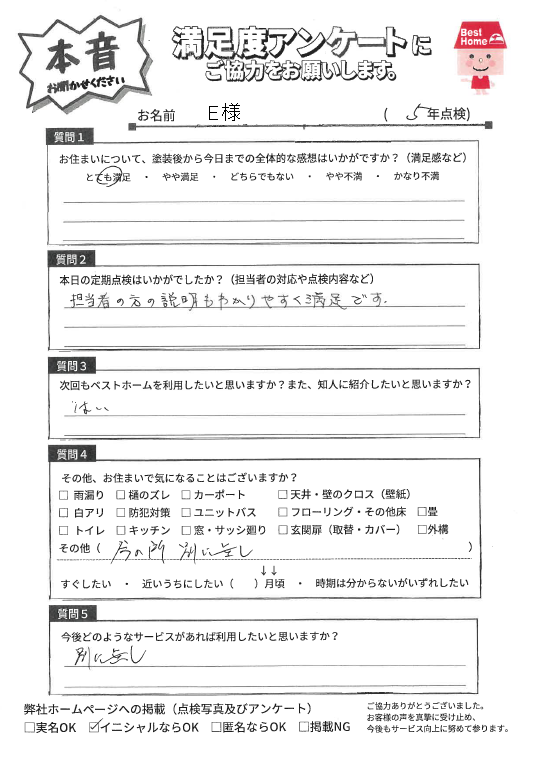 本音
お聞かせください
満足度アンケートに
ご協力をお願いします。
Best
Home
お名前 E様 ( 5年点検)
質問1
お住まいについて、塗装後から今日までの全体的な感想はいかがですか？（満足感など）
とても満足 ・ やや満足 ・ どちらでもない ・ やや不満 ・ かなり不満
質問2
本日の定期点検はいかがでしたか？（担当者の対応や点検内容など）
担当者の方の説明もわかりやすく満足です.
質問3
次回もベストホームを利用したいと思いますか？また、知人に紹介したいと思いますか？
はい
質問4
その他、お住まいで気になることはございますか？
□ 雨漏り □ 樋のズレ □ カーポート □ 天井・壁のクロス（壁紙）
□ 白アリ □ 防犯対策 □ ユニットバス □ フローリング・その他床 □畳
□ トイレ □ キッチン □ 窓・サッシ廻り □ 玄関扉（取替・カバー） □外構
その他（ 今の所 別に無し ）
↓↓
すぐしたい ・ 近いうちにしたい（ ）月頃 ・ 時期は分からないがいずれしたい
質問5
今後どのようなサービスがあれば利用したいと思いますか？
別に無し
弊社ホームページへの掲載（点検写真及びアンケート）
□実名OK ☑イニシャルならOK □匿名ならOK □掲載NG
ご協力ありがとうございました。
お客様の声を真摯に受け止め、
今後もサービス向上に努めて参ります。